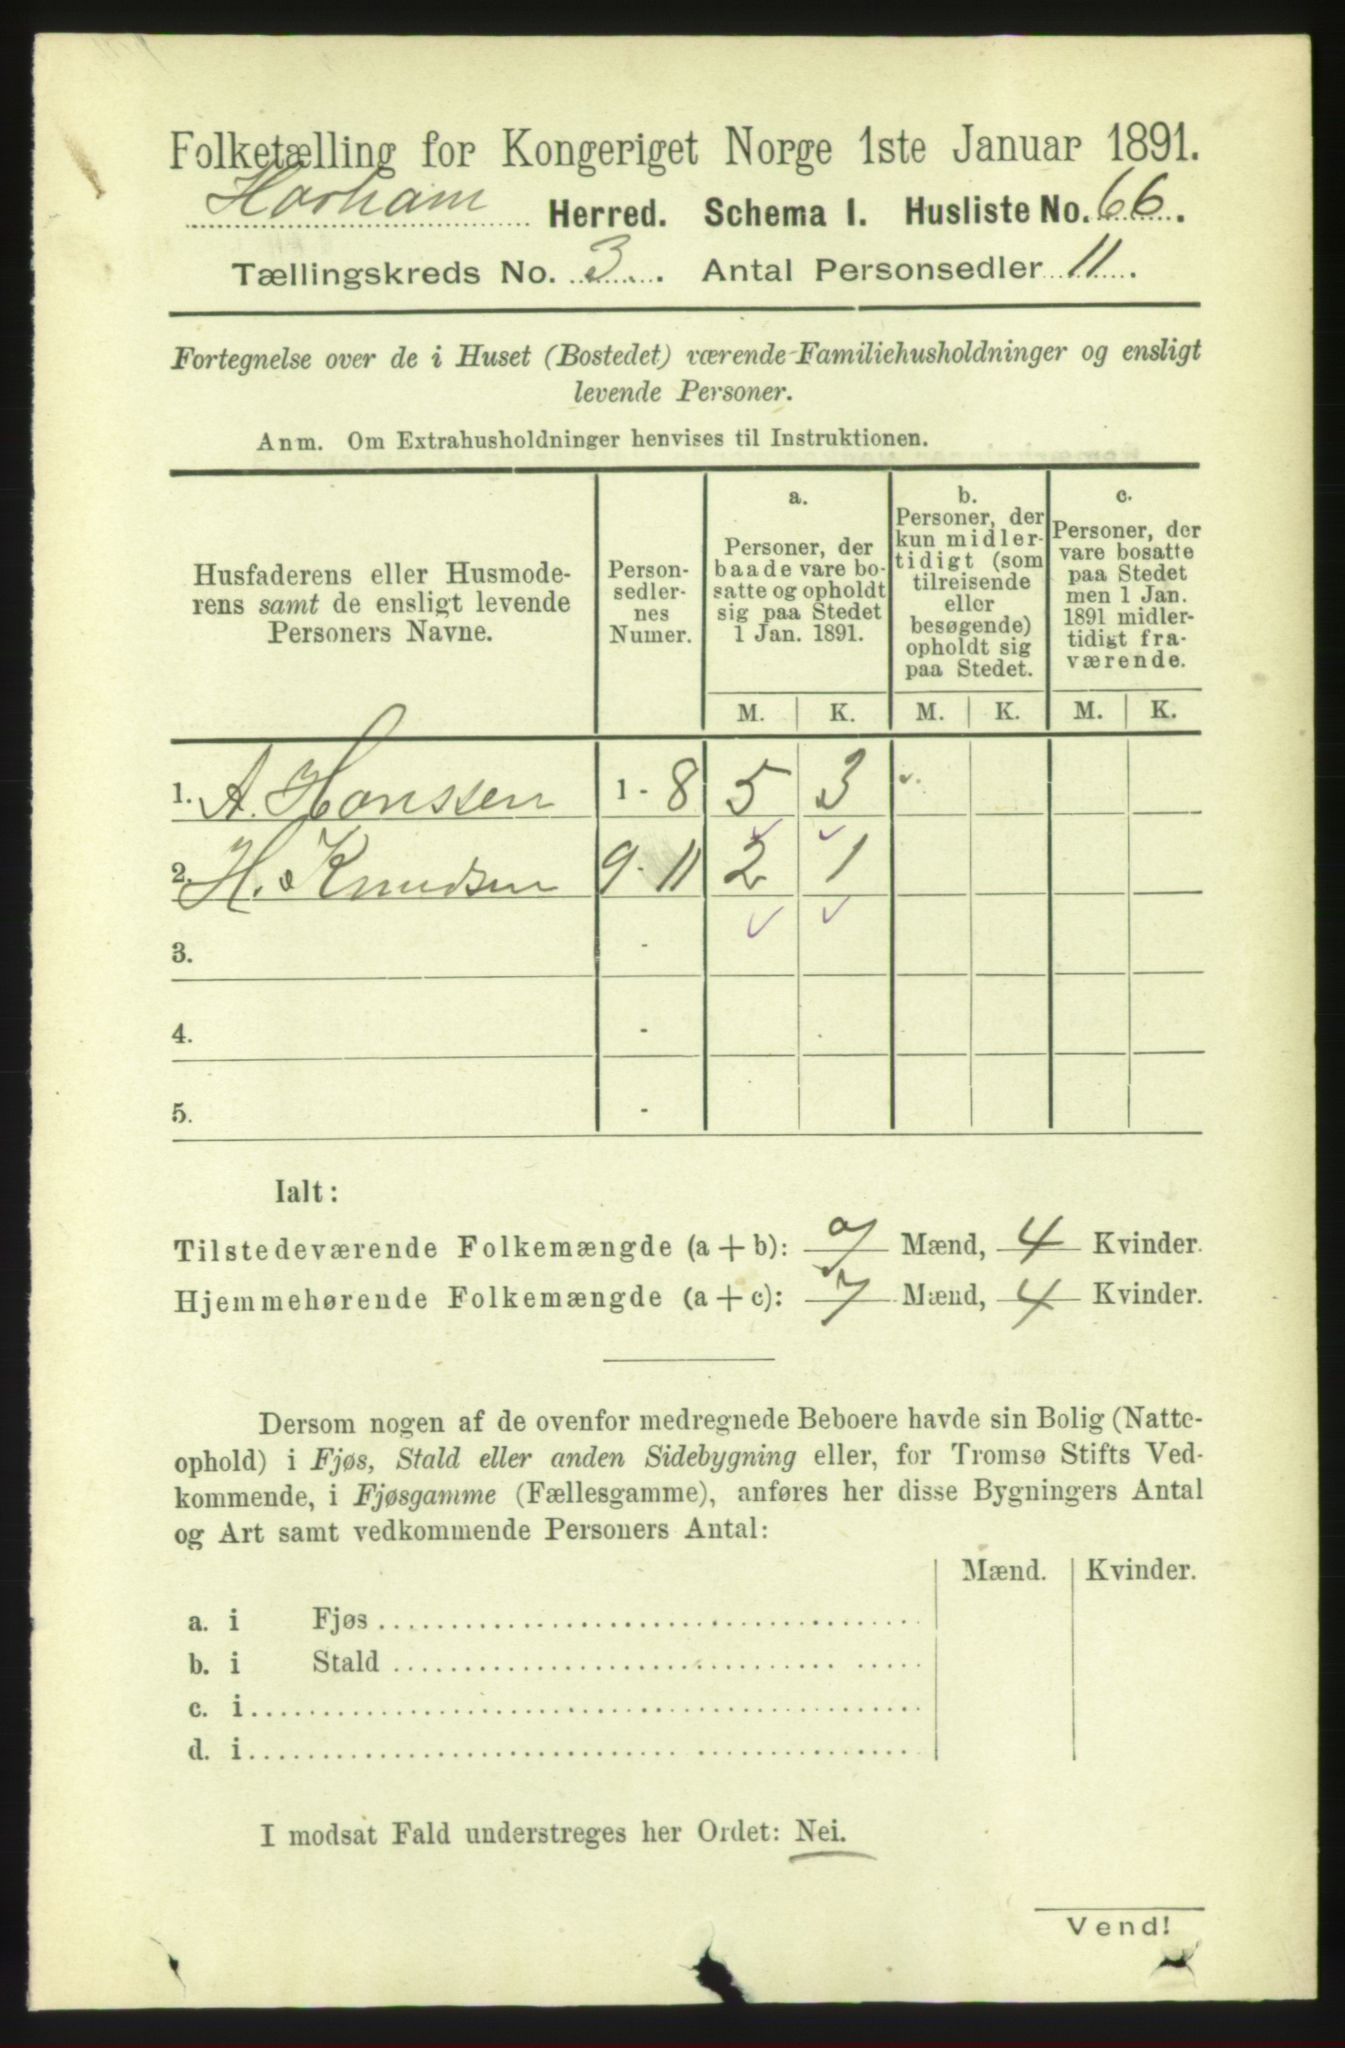 Folketælling for Kongeriget Norge 1ste Januar 1891.
Harham Herred. Schema I. Husliste No. 66.
Tællingskreds No. 3. Antal Personsedler 11.
Fortegnelse over de i Huset (Bostedet) værende Familiehusholdninger og ensligt
levende Personer.
Anm. Om Extrahusholdninger henvises til Instruktionen.
Husfaderens eller Husmode-
rens samt de ensligt levende
Personers Navne.
Person-
sedler-
nes
Numer.
a.
Personer, der
baade vare bo-
satte og opholdt
sig paa Stedet
1 Jan. 1891.
b.
Personer, der
kun midler-
tidigt (som
tilreisende
eller
besøgende)
opholdt sig
paa Stedet.
c.
Personer, der
vare bosatte
paa Stedet
men 1 Jan.
1891 midler-
tidigt fra-
værende.
M. K. M. K. M. K.
1. A. Hanssen 1 - 8 5 3
2. H. Knudsen 9 - 11 2 1
3. -
4. -
5. -
Ialt:
Tilstedeværende Folkemængde (a + b): 7 Mænd, 4 Kvinder.
Hjemmehørende Folkemængde (a + c): 7 Mænd, 4 Kvinder.
Dersom nogen af de ovenfor medregnede Beboere havde sin Bolig (Natte-
ophold) i Fjøs, Stald eller anden Sidebygning eller, for Tromsø Stifts Ved-
kommende, i Fjøsgamme (Fællesgamme), anføres her disse Bygningers Antal
og Art samt vedkommende Personers Antal:
Mænd. Kvinder.
a. i Fjøs
b. i Stald
c. i
d. i
I modsat Fald understreges her Ordet: Nei.
Vend!